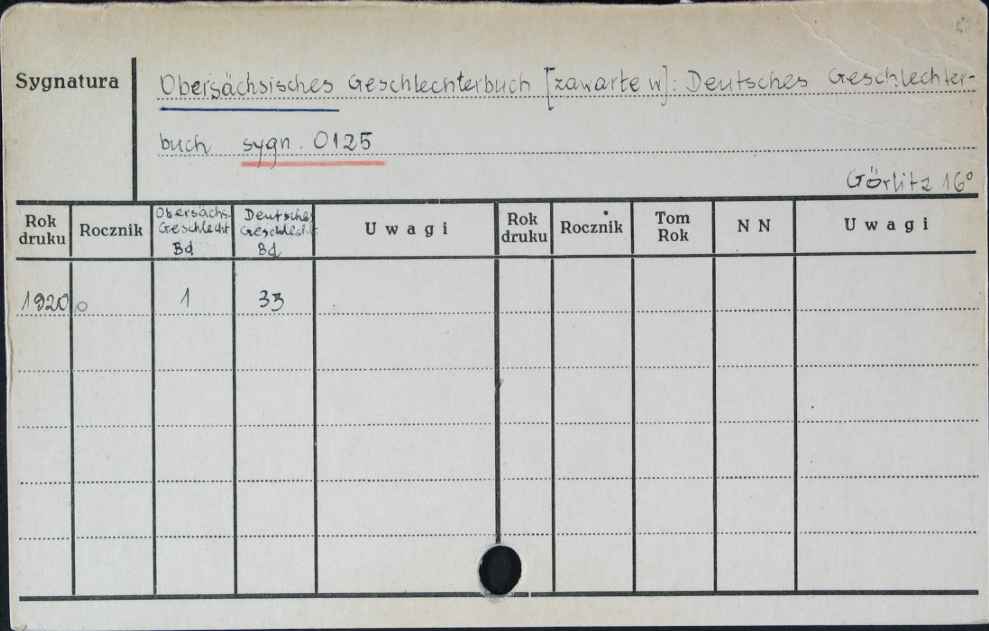 Sygnatura Obersächsisches Geschlechterbuch [zawarte w]: Deutsches Geschlechter-
buch sygn. 0125
Görlitz 16°
Rok druku Rocznik Obersächs. Geschlecht Bd Deutsches Geschlecht Bd Uwagi Rok druku Rocznik Tom Rok NN Uwagi
1920 1 33